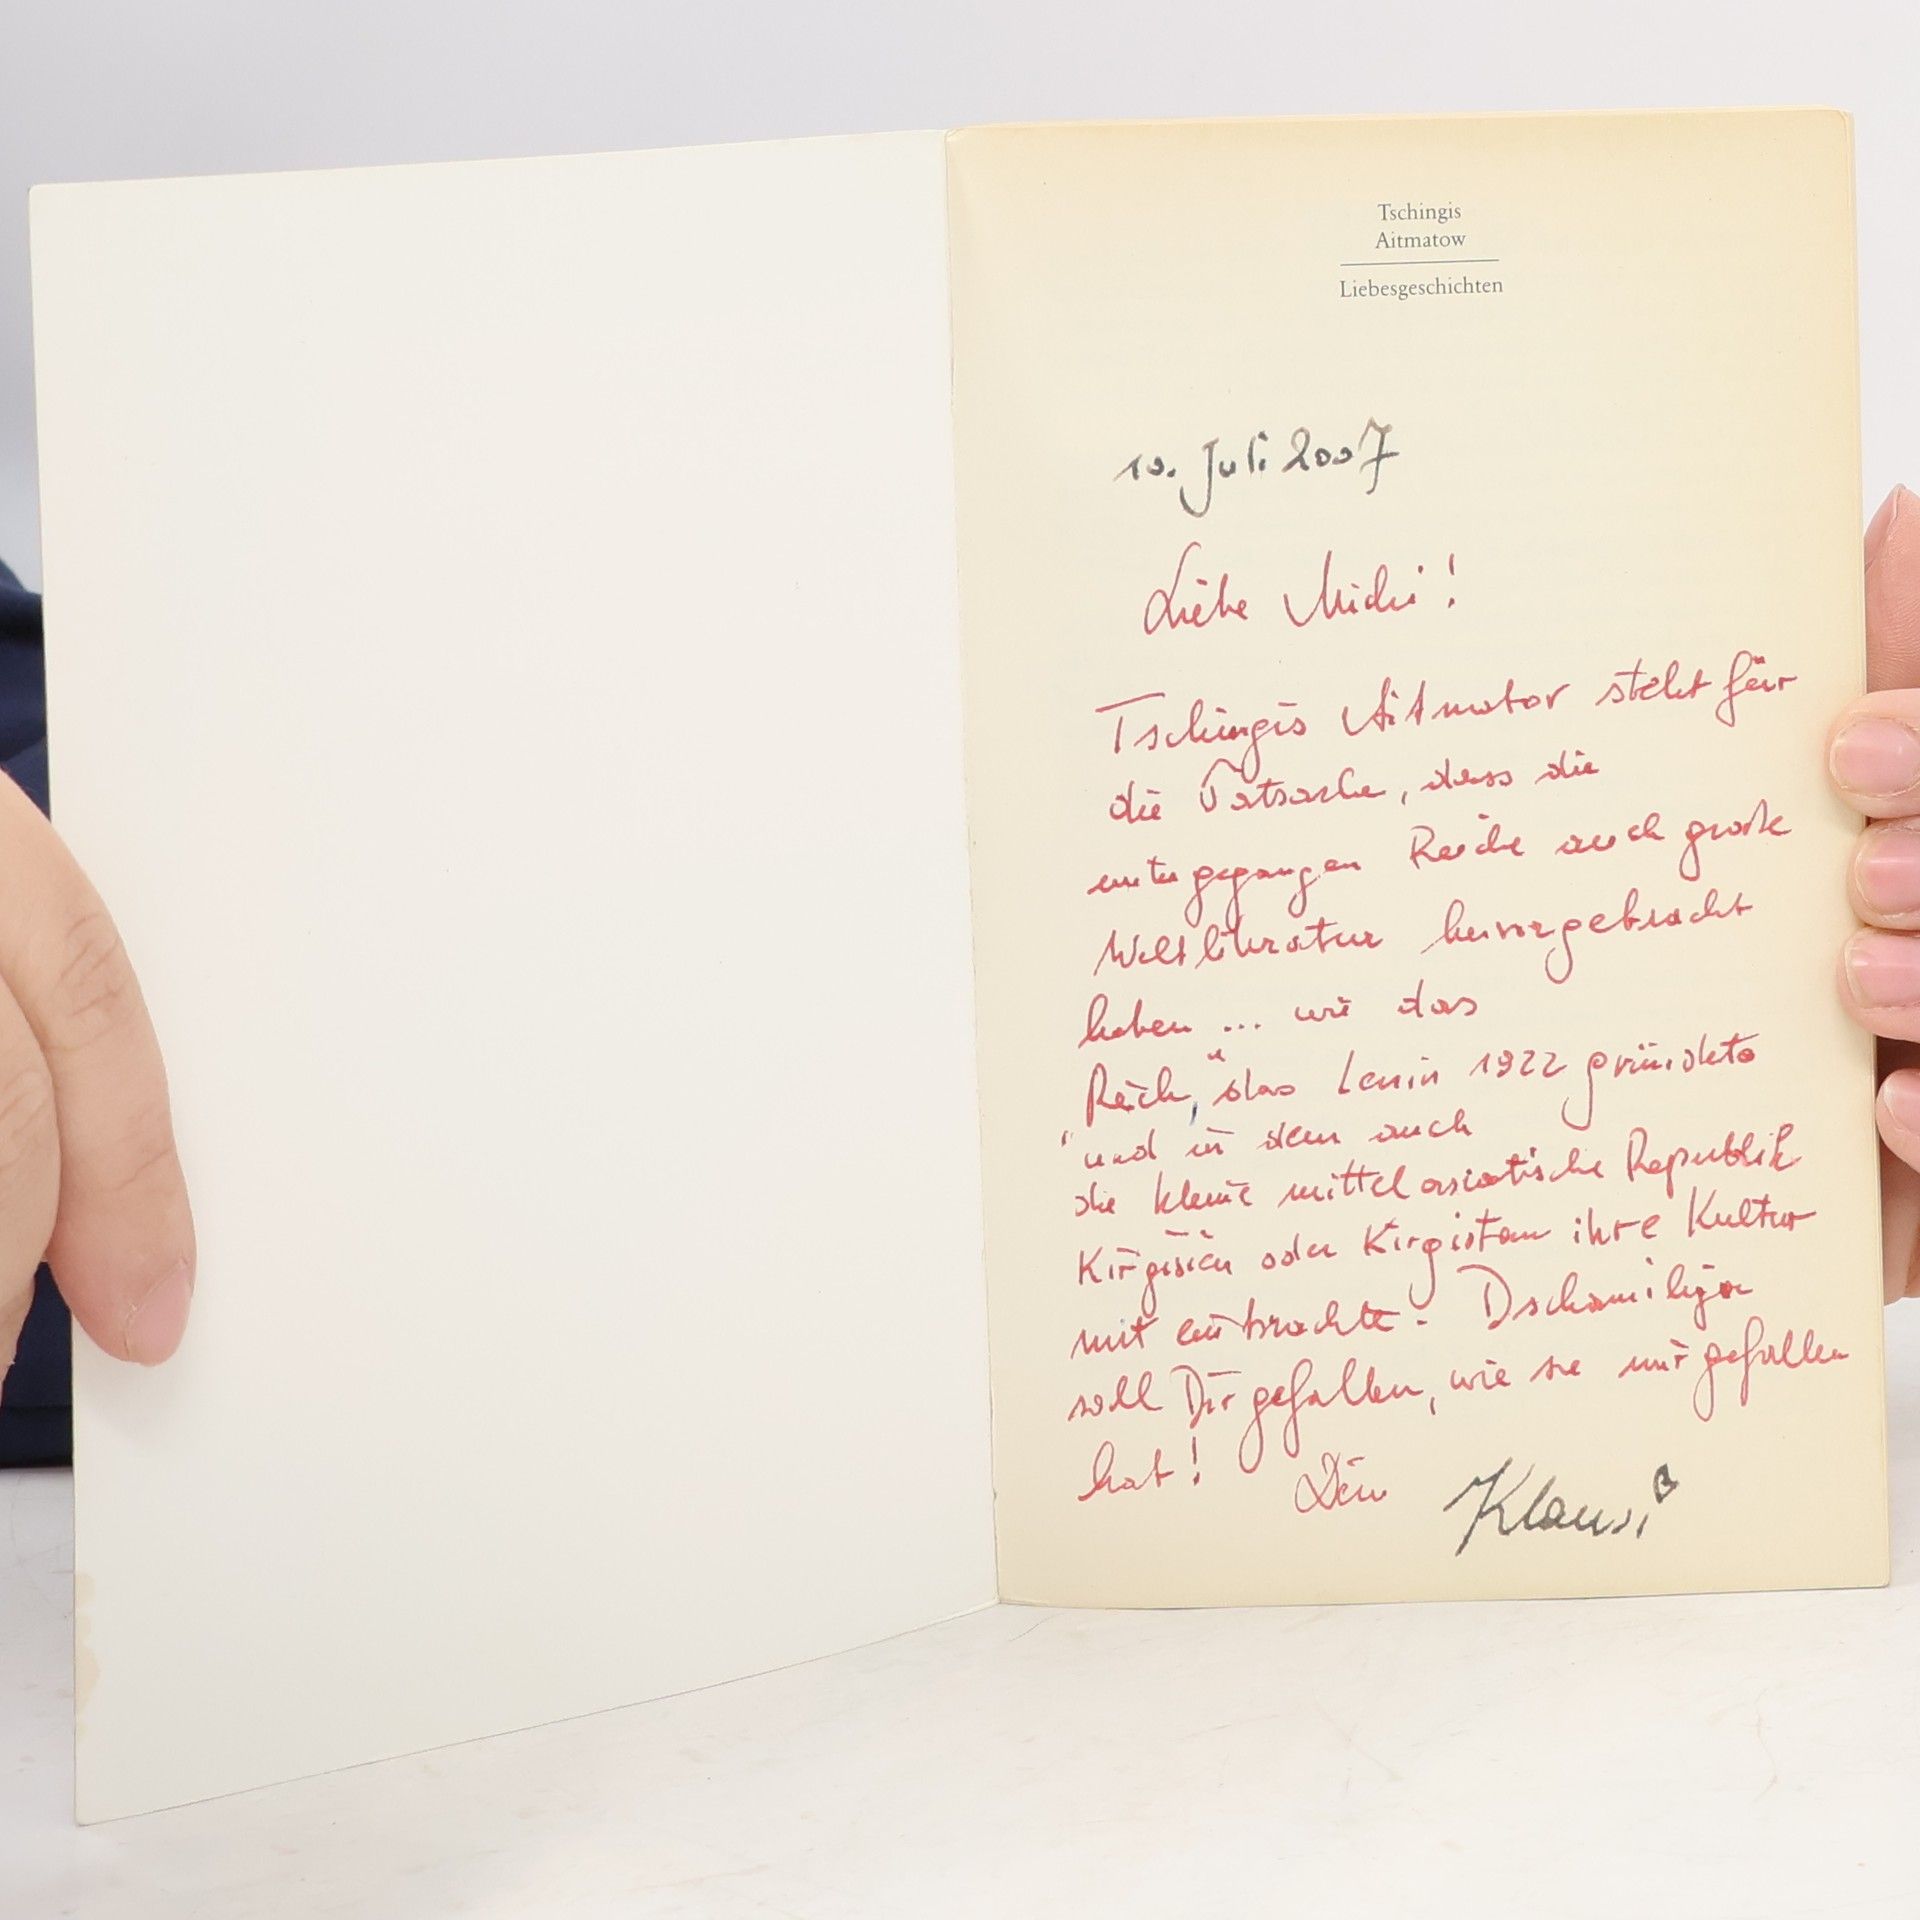 Tschingis
Aitmatow
Liebesgeschichten
10. Juli 2007
Liebe Michi!
Tschingis Aitmatov steht für
die Tatsache, dass die
untergegangen Reiche auch große
Weltliteratur hervorgebracht
haben ... wie das
Reich, "das Lenin 1922 gründete
"und in dem auch
die kleine mittelasiatische Republik
Kirgisien oder Kirgistan ihre Kultur
mit einbrachte. Dschamilija
soll Dir gefallen, wie sie mir gefallen
hat! Dein Klausi